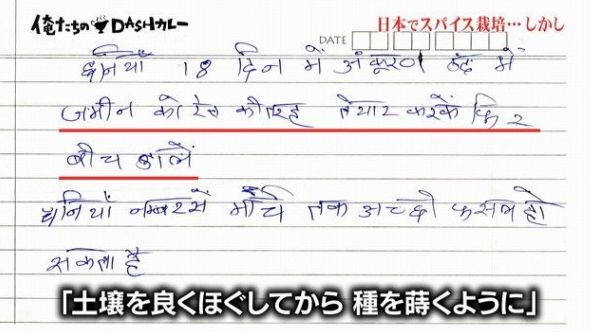 俺たちの DASHカレー
日本でスパイス栽培…しかし
DATE
धनियाँ 18 दिन में अंकूरण ठंड में
जमीन को रेत की तरह तैयार करके फिर
बीच डालें
धनियाँ नम्बर से मार्च तक अच्छी फसल हो
सकता है
「土壌を良くほぐしてから 種を蒔くように」